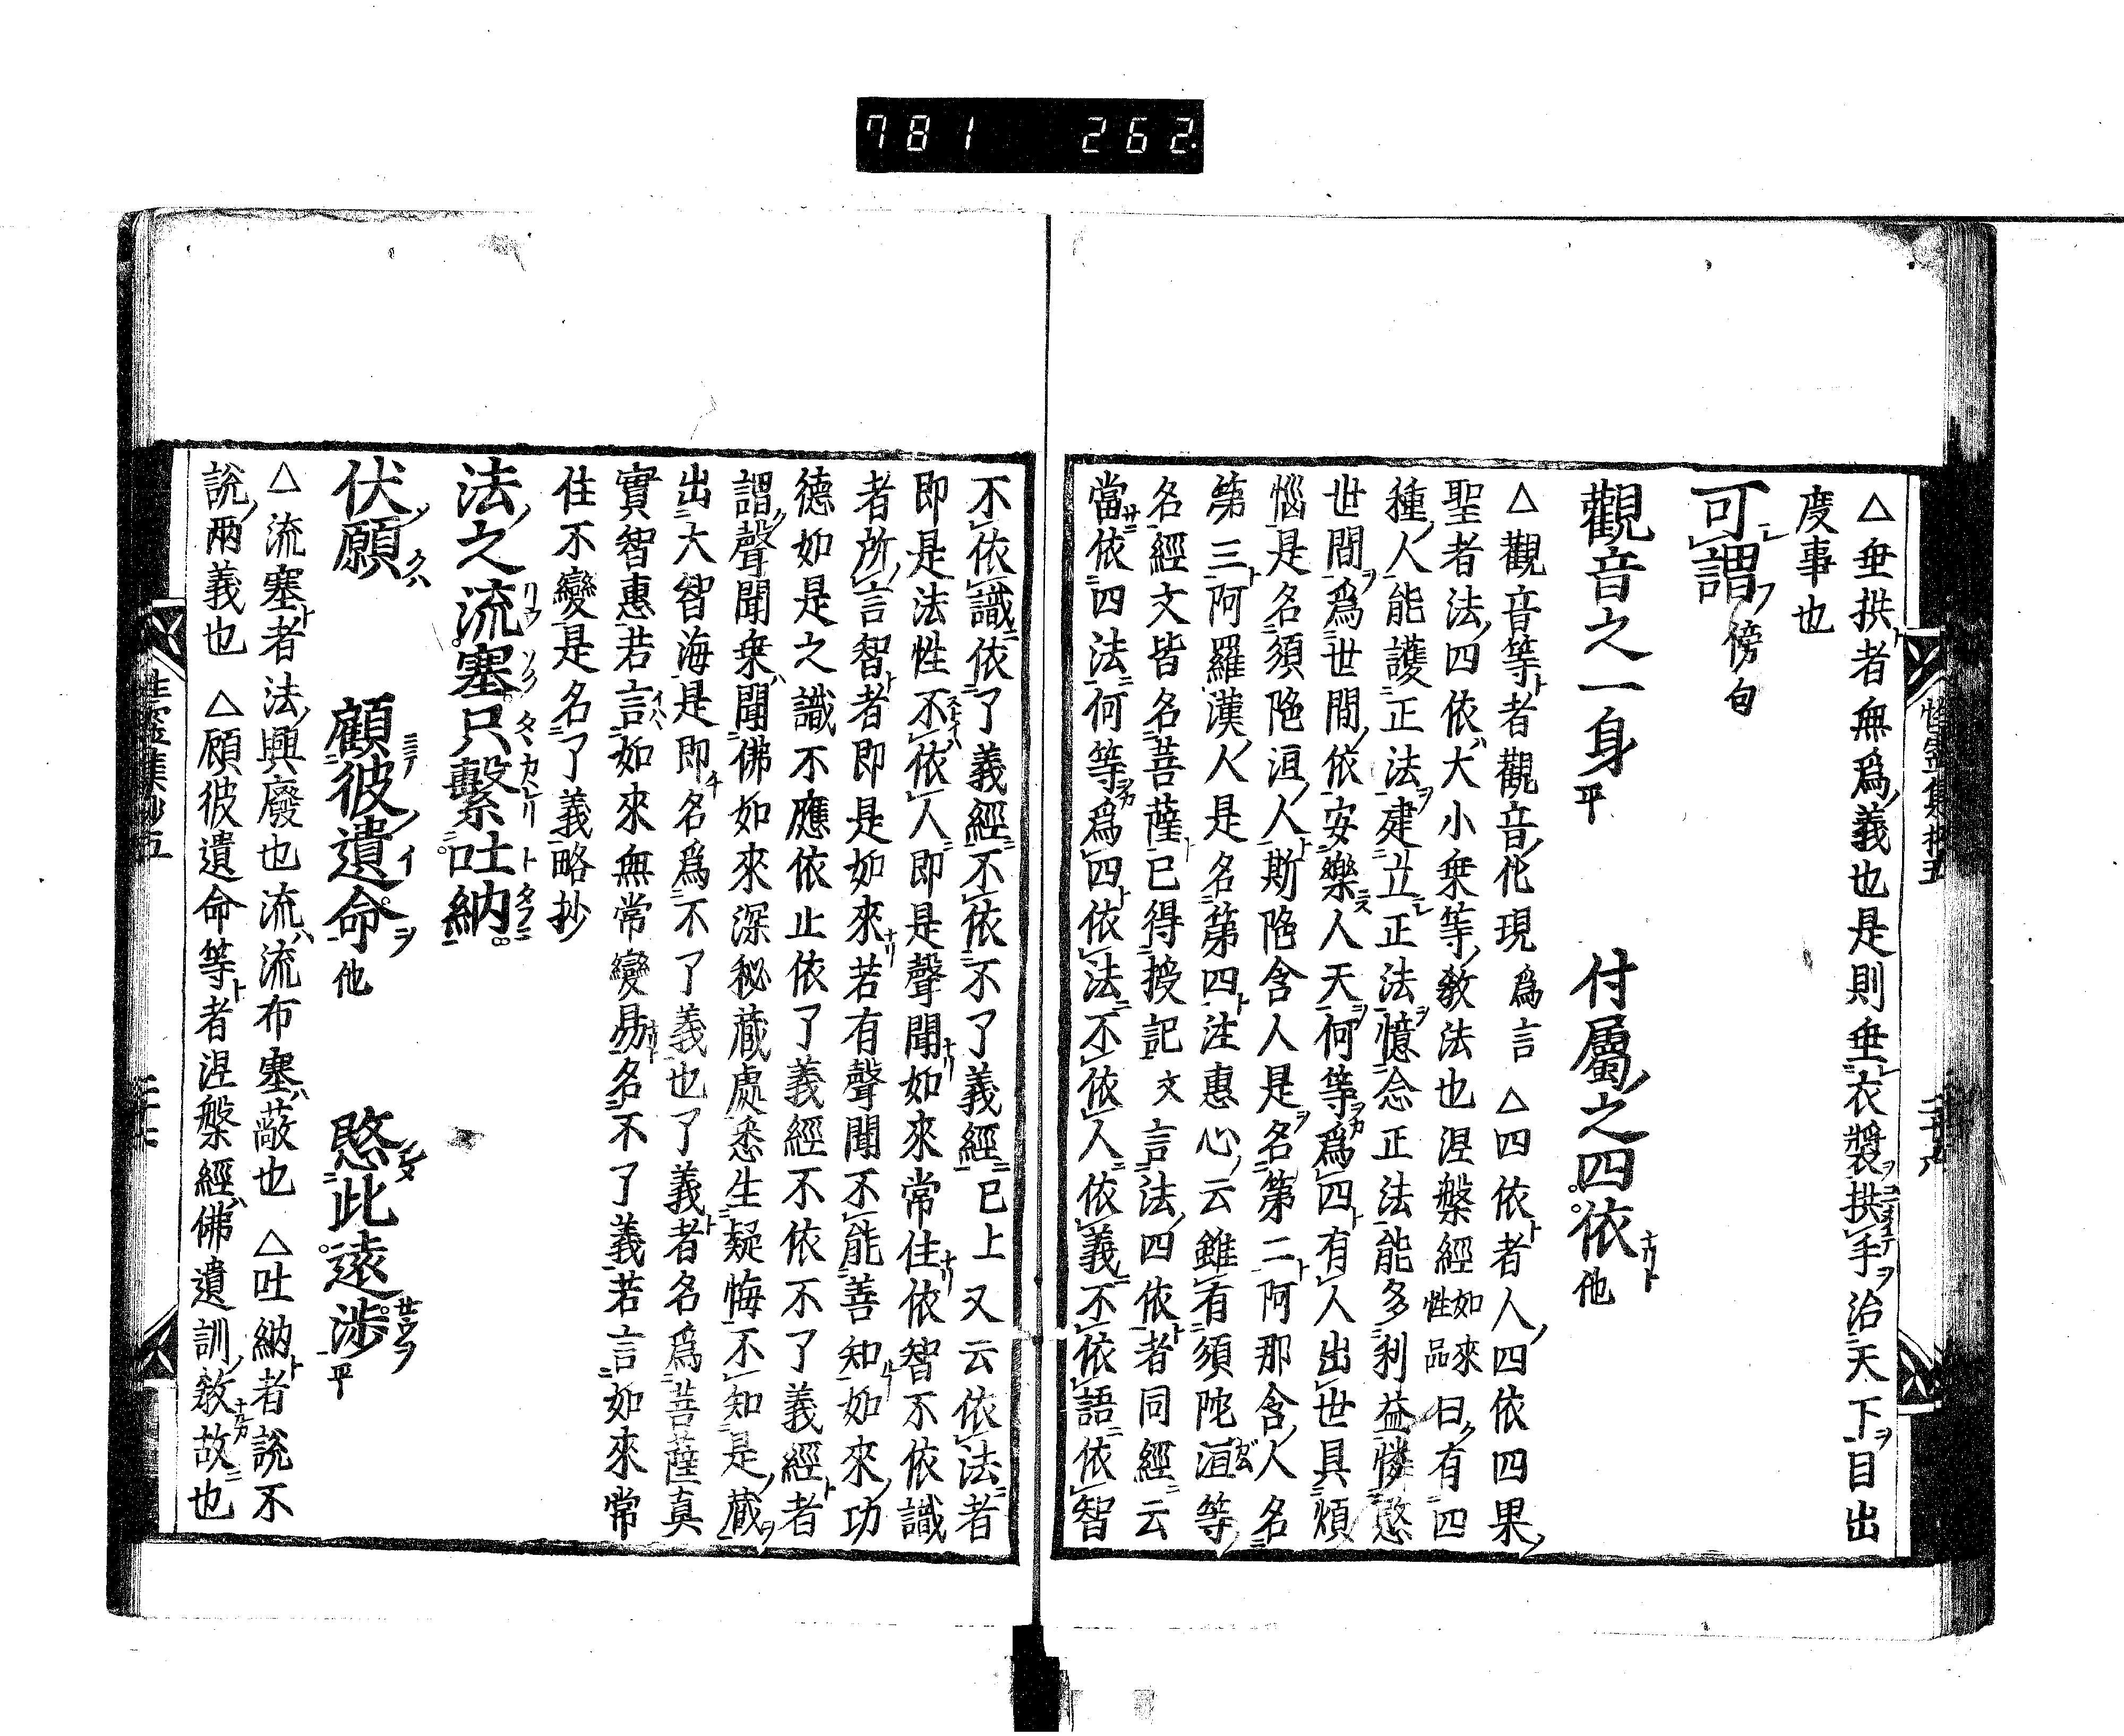 781 262
△垂拱者無爲義也是則垂衣裝拱手治天下目出
度事也
可謂傍句
觀音之一身平 付屬之四依他
△觀音等者觀音化現爲言 △四依者人四依四果
聖者法四依大小乗等教法也涅槃經如來性品曰有四
種人能護正法建立正法憶念正法能多利益憐愍
世間爲世間依安樂人天何等爲四有人出世具煩
惱是名須陁洹人斯陁含人是名第二阿那含人名
第三阿羅漢人是名第四注惠心云雖有須陀洹等
名經文皆名菩薩已得授記文言法四依者同經云
當依四法何等爲四依法不依人依義不依語依智
不依識依了義經不依不了義經已上又云依法者
即是法性不依人即是聲聞如來常住依智不依識
者所言智者即是如來若有聲聞不能善知如來功
德如是之識不應依止依了義經不依不了義經者
謂聲聞乗聞佛如來深秘蔵處悉生疑悔不知是蔵
出大智海是即名爲不了義也了義者名爲菩薩真
實智惠若言如來無常變易名不了義若言如來常
住不變是名了義略抄
法之流塞只繫吐納
伏願 顧彼遺命他 愍此遠渉平
△流塞者法興廢也流流布塞蔽也 △吐納者說不
說兩義也 △顧彼遺命等者涅槃經佛遺訓教故也